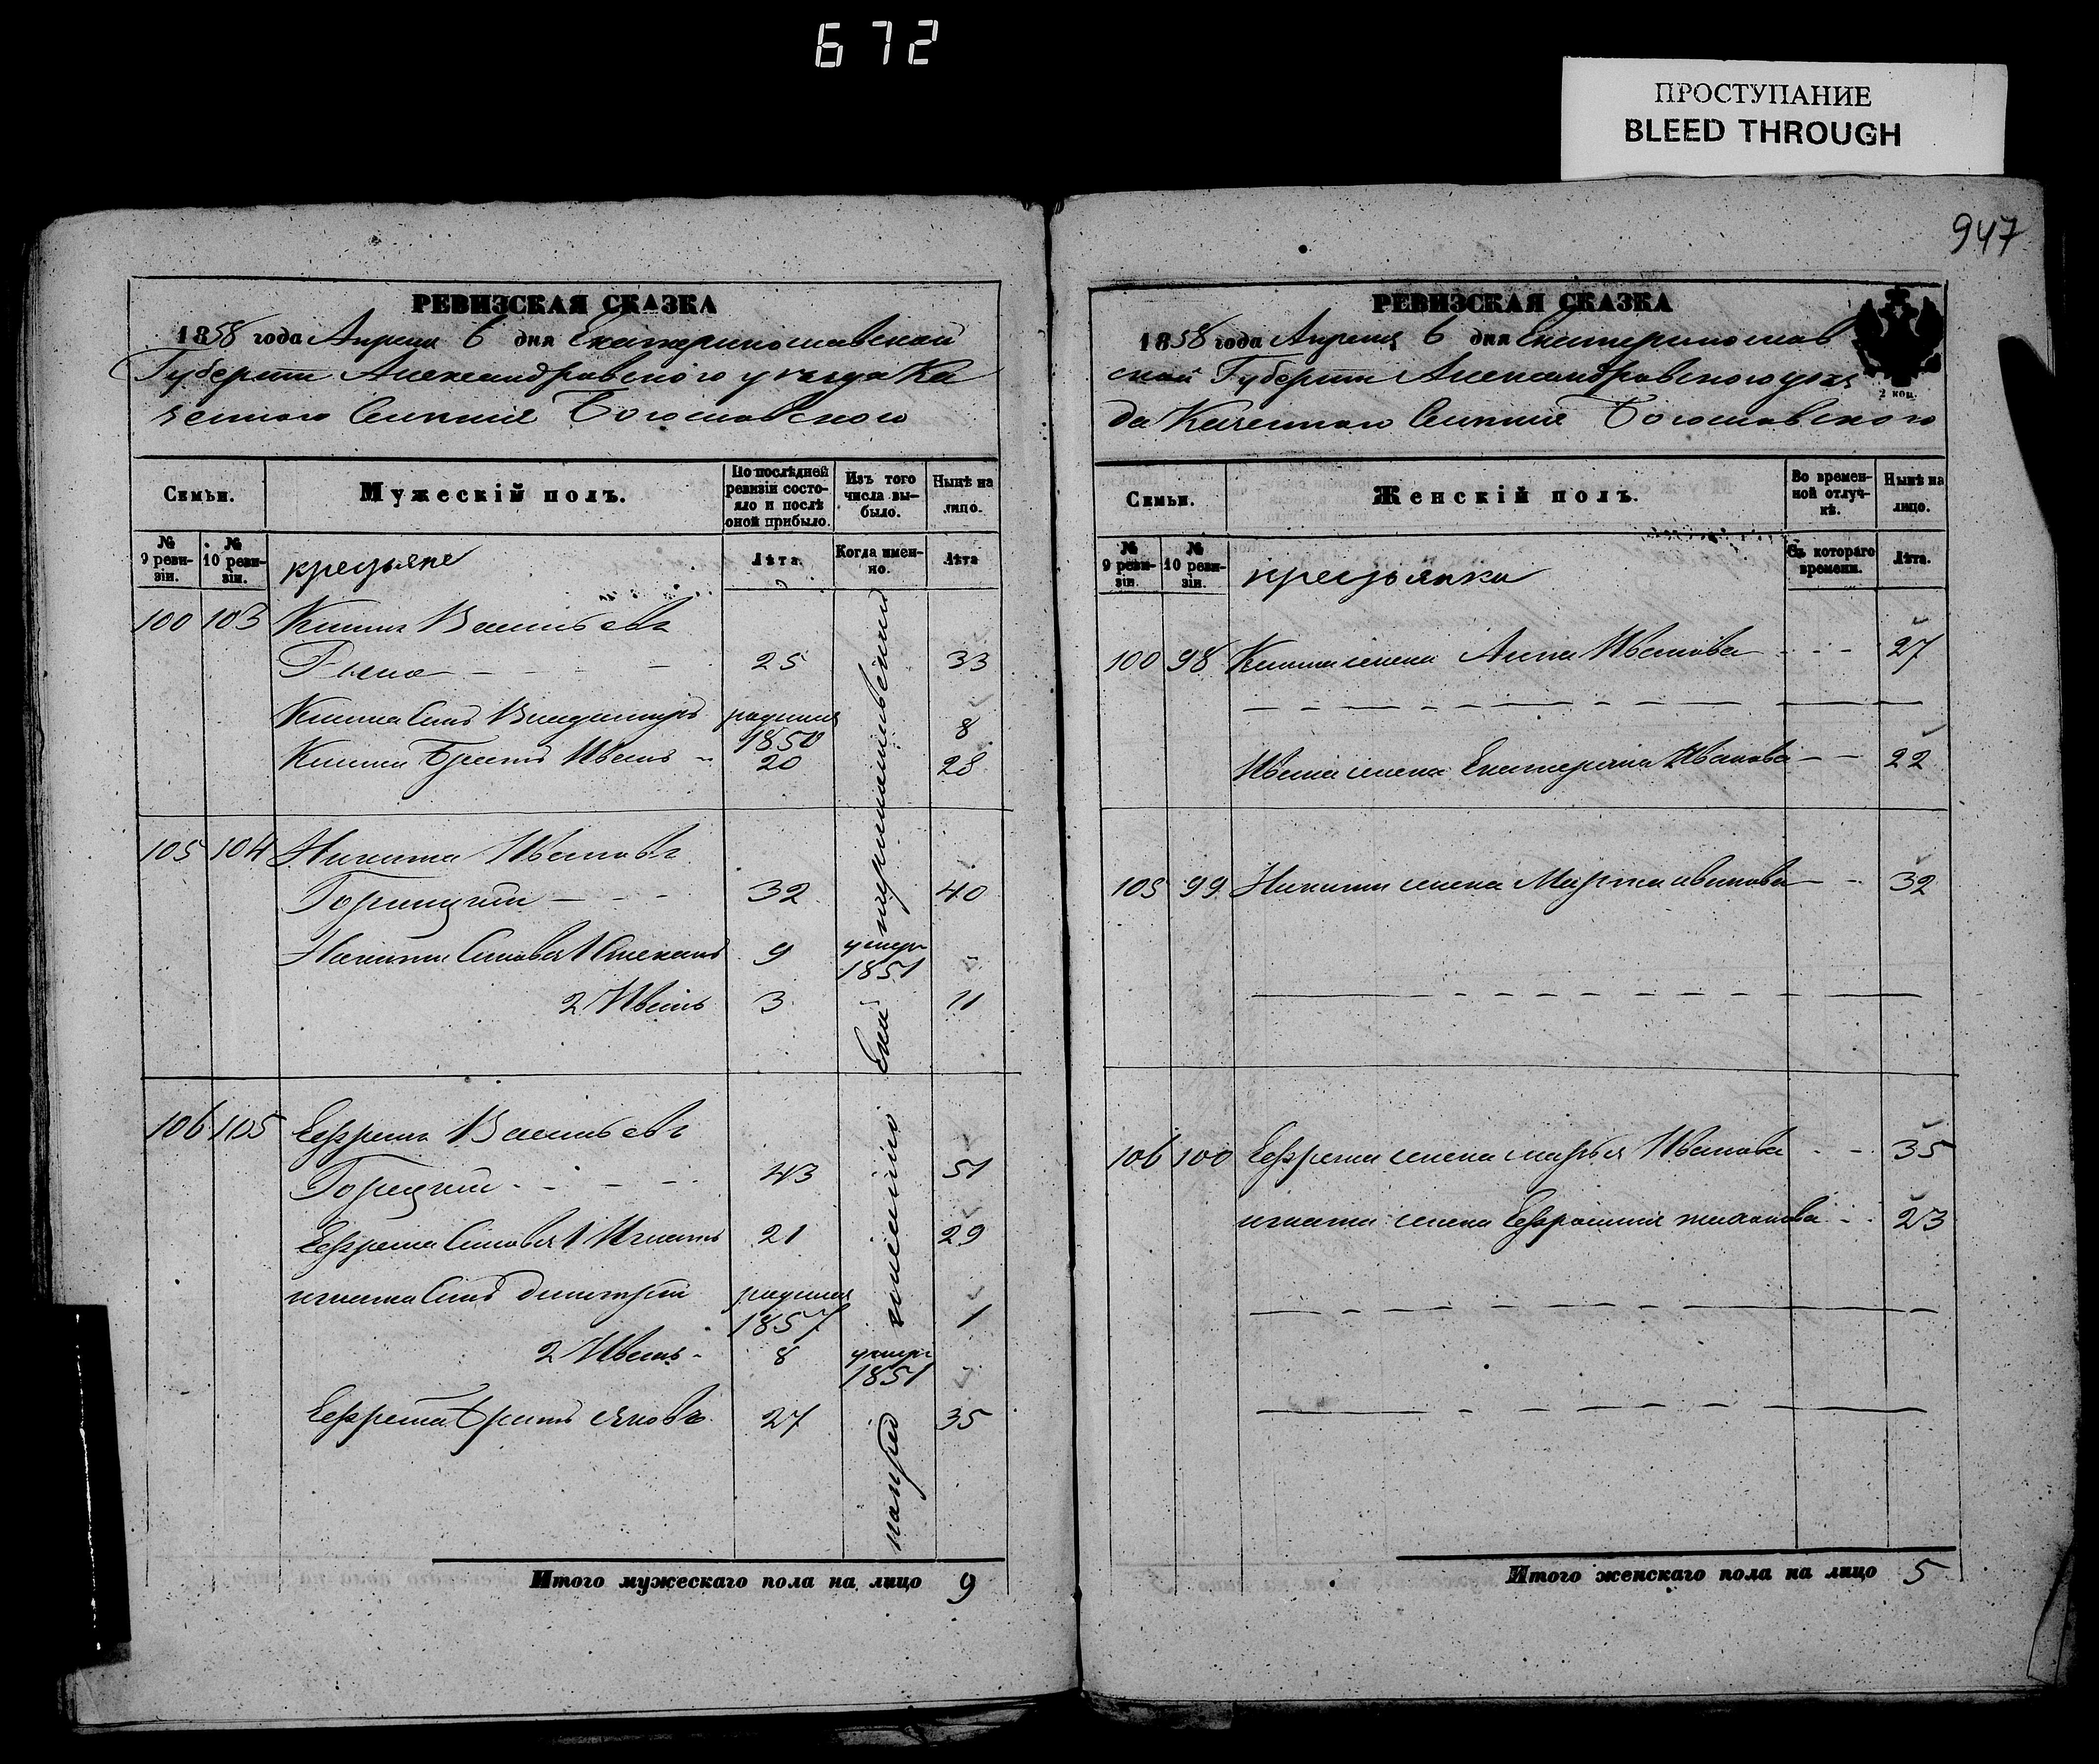 672
ПРОСТУПАНИЕ
BLEED THROUGH
947
РЕВИЗСКАЯ СКАЗКА
1858 года Апреля 6 дня Екатеринославской
Губернии Александровского уезда Ка
зенного Селения Богословского
Семьи.
Мужескій полъ.
По послѣдней ревизіи состояло и послѣ оной прибыло.
Изъ того числа вы-было.
Нынѣ на лицо.
№ 9 реви-зіи.
№ 10 реви-зіи.
крестьяне
Лѣта.
Когда имен-но.
Лѣта
100 103 Васильевъ
25 33
сынъ Владимиръ родился 1850 8
братъ Иванъ 20 28
105 104 Никита Ивановъ
32 40
Никиты Сыновья 1 9 умеръ 1851
2 Иванъ 3 11
106 105 Ефремъ Васильевъ
Горицкий 43 51
Ефрема Сыновья 1 Игнатъ 21 29
Игната Сынъ Димитрий родился 1857 1
2 Иванъ 8 умеръ 1851
Ефрема братъ Яковъ 27 35
Итого мужескаго пола на лицо 9
РЕВИЗСКАЯ СКАЗКА
1858 года Апреля 6 дня Екатеринослав
ской Губернии Александровского уез
да Казенного Селения Богословского
2 коп.
Семьи.
Женскій полъ.
Во времен-ной отлуч-кѣ.
Нынѣ на лицо.
№ 9 реви-зіи.
№ 10 реви-зіи.
крестьянки
Съ котораго времени.
Лѣта.
100 98 жена Анна Иванова 27
Ивана жена Екатерина Иванова 22
105 99 Никиты жена Марфа Иванова 32
106 100 Ефрема жена Марья Иванова 35
Игната жена 23
Итого женскаго пола на лицо 5